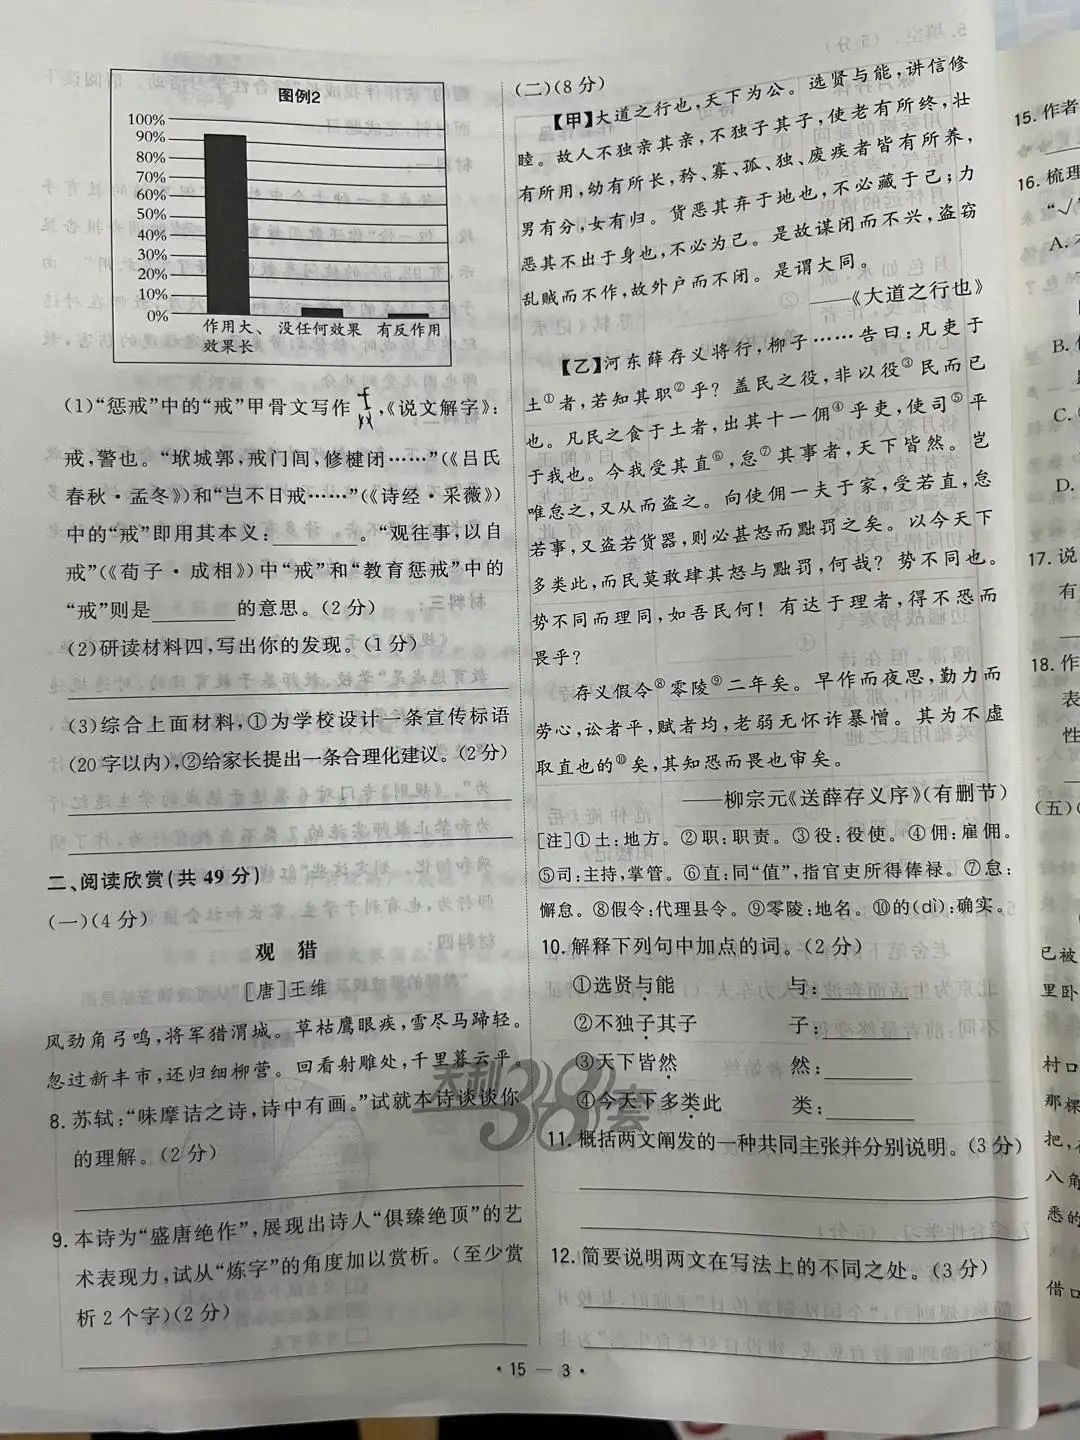 图例2
100%
90%
80%
70%
60%
50%
40%
30%
20%
10%
0%
作用大、 没任何效果 有反作用
效果长
(1)“惩戒”中的“戒”甲骨文写作 ,《说文解字》:
戒,警也。“坿城郭,戒门闾,修楗闭……”(《吕氏
春秋·孟冬》)和“岂不日戒……”(《诗经·采薇》)
中的“戒”即用其本义:________。“观往事,以自
戒”(《荀子·成相》)中“戒”和“教育惩戒”中的
“戒”则是________的意思。(2分)
(2)研读材料四,写出你的发现。(1分)
(3)综合上面材料,①为学校设计一条宣传标语
(20字以内),②给家长提出一条合理化建议。(2分)
二、阅读欣赏(共49分)
(一)(4分)
观 猎
[唐]王维
风劲角弓鸣,将军猎渭城。草枯鹰眼疾,雪尽马蹄轻。
忽过新丰市,还归细柳营。回看射雕处,千里暮云平。
8. 苏轼:“味摩诘之诗,诗中有画。”试就本诗谈谈你
的理解。(2分)
9. 本诗为“盛唐绝作”,展现出诗人“俱臻绝顶”的艺
术表现力,试从“炼字”的角度加以赏析。(至少赏
析2个字)(2分)
(二)(8分)
【甲】大道之行也,天下为公。选贤与能,讲信修
睦。故人不独亲其亲,不独子其子,使老有所终,壮
有所用,幼有所长,矜、寡、孤、独、废疾者皆有所养,
男有分,女有归。货恶其弃于地也,不必藏于己;力
恶其不出于身也,不必为己。是故谋闭而不兴,盗窃
乱贼而不作,故外户而不闭。是谓大同。
——《大道之行也》
【乙】河东薛存义将行,柳子……告曰:凡吏于
土①者,若知其职②乎?盖民之役,非以役③民而已
也。凡民之食于土者,出其十一佣④乎吏,使司⑤平
于我也。今我受其直⑥,怠⑦其事者,天下皆然。岂
唯怠之,又从而盗之。向使佣一夫于家,受若直,怠
若事,又盗若货器,则必甚怒而黜罚之矣。以今天下
多类此,而民莫敢肆其怒与黜罚,何哉?势不同也。
势不同而理同,如吾民何!有达于理者,得不恐而
畏乎?
存义假令⑧零陵⑨二年矣。早作而夜思,勤力而
劳心,讼者平,赋者均,老弱无怀诈暴憎。其为不虚
取直也的⑩矣,其知恐而畏也审矣。
——柳宗元《送薛存义序》(有删节)
[注]①土:地方。②职:职责。③役:役使。④佣:雇佣。
⑤司:主持,掌管。⑥直:同“值”,指官吏所得俸禄。⑦怠:
懈怠。⑧假令:代理县令。⑨零陵:地名。⑩的(dí):确实。
10. 解释下列句中加点的词。(2分)
①选贤与能 与:________
②不独子其子 子:________
③天下皆然 然:________
④今天下多类此 类:________
11. 概括两文阐发的一种共同主张并分别说明。(3分)
12. 简要说明两文在写法上的不同之处。(3分)
天利38套
·15—3·
15. 作者
16. 梳理
“√”
A.
B.
C.
D.
17. 说
有
18. 作
表
性
(五)(
已被
里卧
村口
那棵
把,
八角
悉的
借口